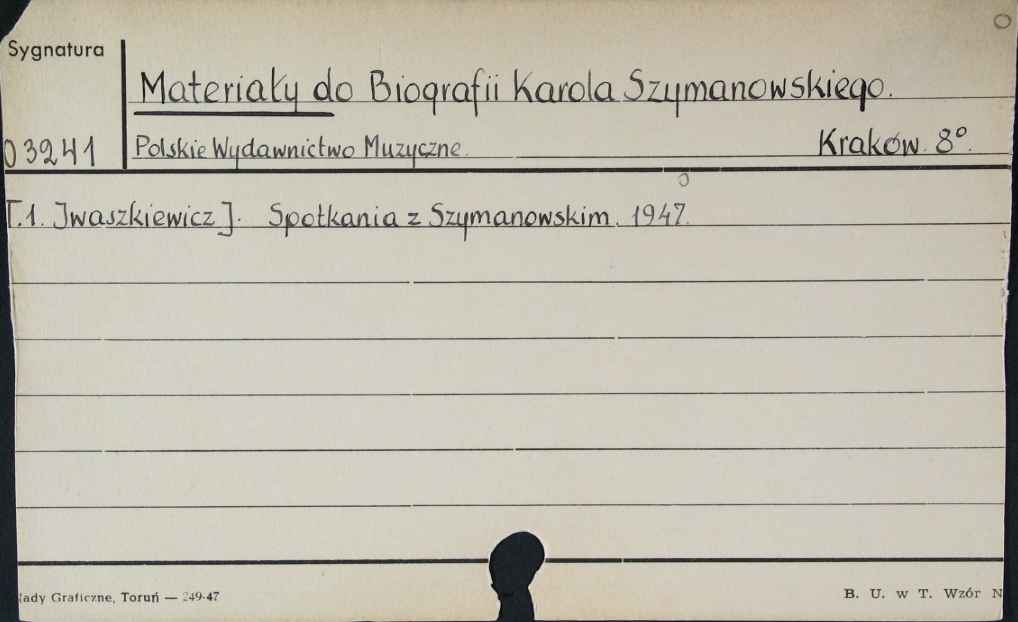 Sygnatura
Materiały do Biografii Karola Szymanowskiego.
03241 Polskie Wydawnictwo Muzyczne. Kraków. 8°.
[.1. Jwaszkiewicz]. Spotkania z Szymanowskim. 1947.
łady Graficzne, Toruń — 249-47
B. U. w T. Wzór N